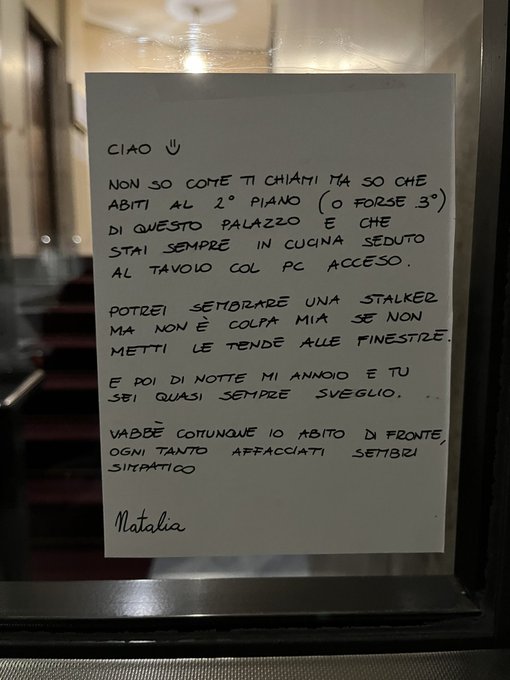 CIAO
NON SO COME TI CHIAMI MA SO CHE
ABITI AL 2° PIANO (O FORSE 3°)
DI QUESTO PALAZZO E CHE
STAI SEMPRE IN CUCINA SEDUTO
AL TAVOLO COL PC ACCESO.
POTREI SEMBRARE UNA STALKER
MA NON È COLPA MIA SE NON
METTI LE TENDE ALLE FINESTRE.
E POI DI NOTTE MI ANNOIO E TU
SEI QUASI SEMPRE SVEGLIO.
VABBÈ COMUNQUE IO ABITO DI FRONTE,
OGNI TANTO AFFACCIATI SEMBRI
SIMPATICO
Natalia